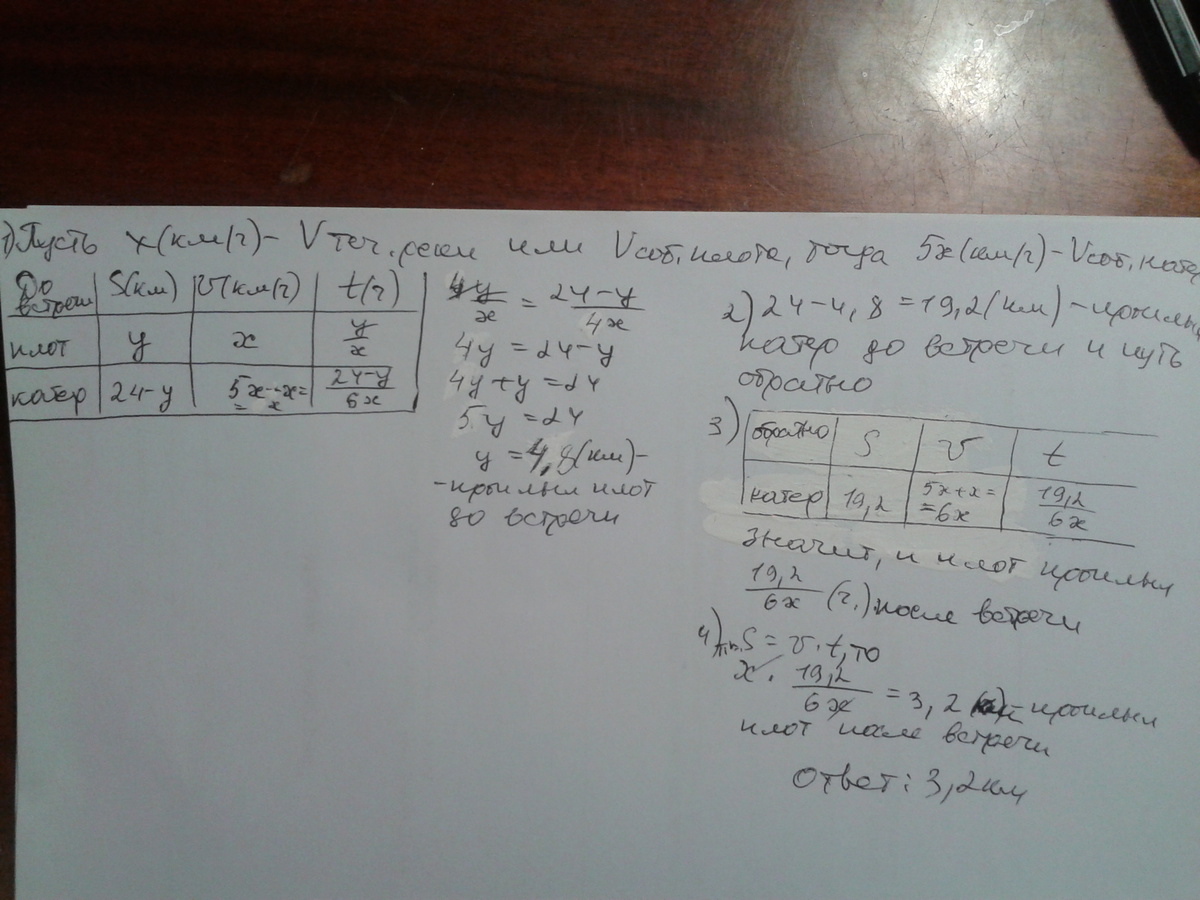 1) Пусть x(км/ч) - Vтеч. реки или Vсоб. плота, тогда 5x(км/ч) - Vсоб. катер
До встречи | S(км) | v(км/ч) | t(ч)
плот | y | x | y/x
катер | 24-y | 5x-x= =x | 24-y/6x
y/x = 24-y/4x
4y = 24-y
4y+y = 24
5y = 24
y = 4,8(км)-
-проплыл плот
до встречи
2) 24-4,8=19,2(км)-проплыл
катер до встречи и путь
обратно
3) обратно | S | v | t
катер | 19,2 | 5x+x= =6x | 19,2/6x
Значит, и плот проплыл
19,2/6x (ч.) после встречи
4) т.к. S = v·t, то
x · 19,2/6x = 3,2 - проплыл
плот после встречи
Ответ: 3,2км